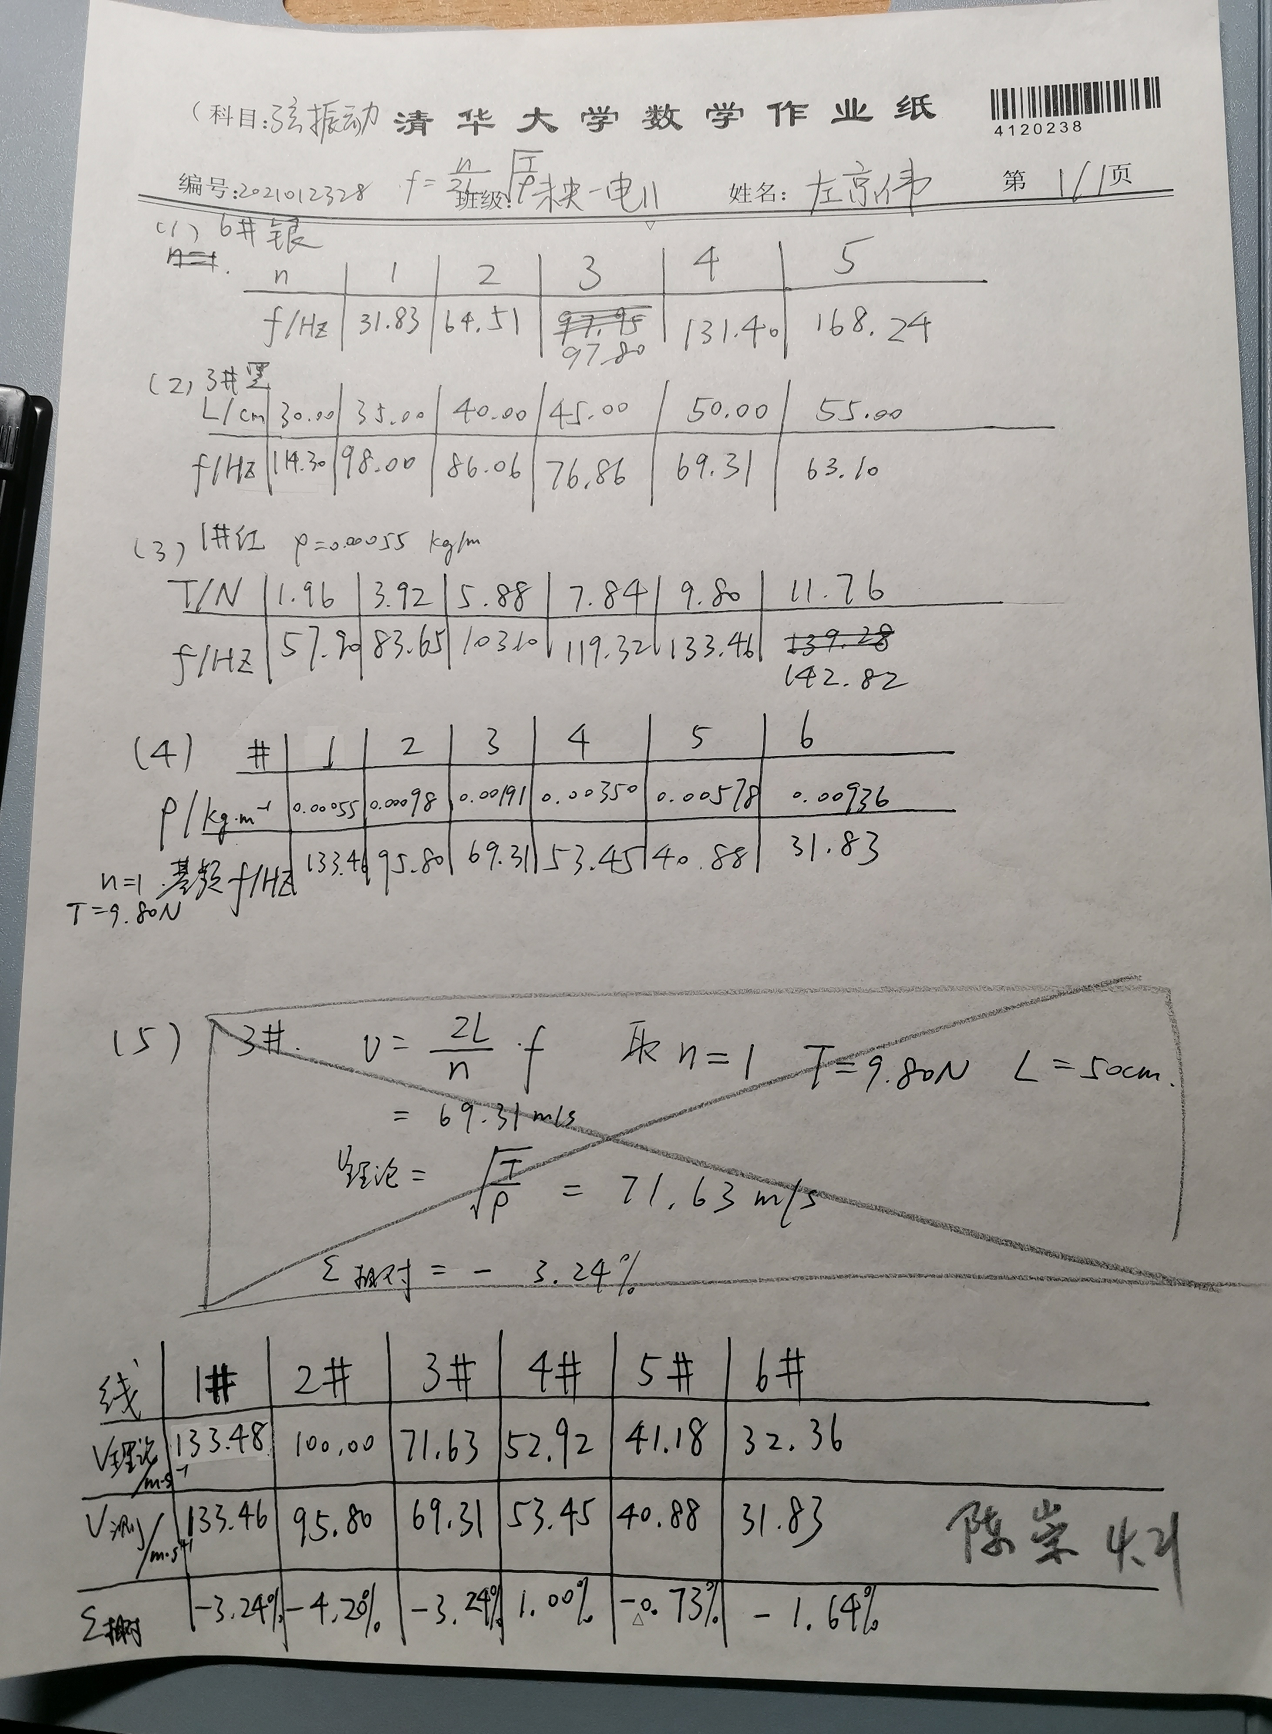 (科目:弦振动 清华大学数学作业纸
4120238
编号:2021012328 f = n/2L √T/ρ 班级: 未央-电11 姓名: 左京伟 第 1/1 页
(1) 6# 银
n=1.
n 1 2 3 4 5
f/Hz 31.83 64.51 97.95 131.40 168.24
97.80
(2) 3# 黑
L/cm 30.00 35.00 40.00 45.00 50.00 55.00
f/Hz 114.30 98.00 86.06 76.86 69.31 63.10
(3) 1# 红 ρ=0.00055 kg/m
T/N 1.96 3.92 5.88 7.84 9.80 11.76
f/Hz 57.90 83.65 103.10 119.32 133.46 139.28
142.82
(4) # 1 2 3 4 5 6
ρ/kg·m⁻¹ 0.00055 0.00098 0.00191 0.00350 0.00578 0.00936
n=1 基频 f/Hz 133.46 95.80 69.31 53.45 40.88 31.83
T=9.80N
(5) 3#. v = 2L/n · f 取 n=1 T=9.80N L=50cm.
= 69.31 m/s
v理论 = √T/ρ = 71.63 m/s
Σ相对 = - 3.24%
线 1# 2# 3# 4# 5# 6#
V理论/m·s⁻¹ 133.48 100.00 71.63 52.92 41.18 32.36
V测/m·s⁻¹ 133.46 95.80 69.31 53.45 40.88 31.83
Σ相对 -3.24% -4.20% -3.24% 1.00% -0.73% -1.64%
陈崇 4.21